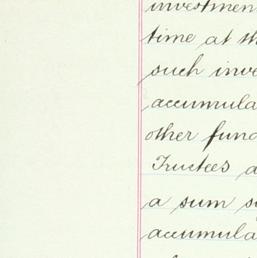 investmen
time at th
such inve
accumula
other fund
Trustees a
a sum s
accumula